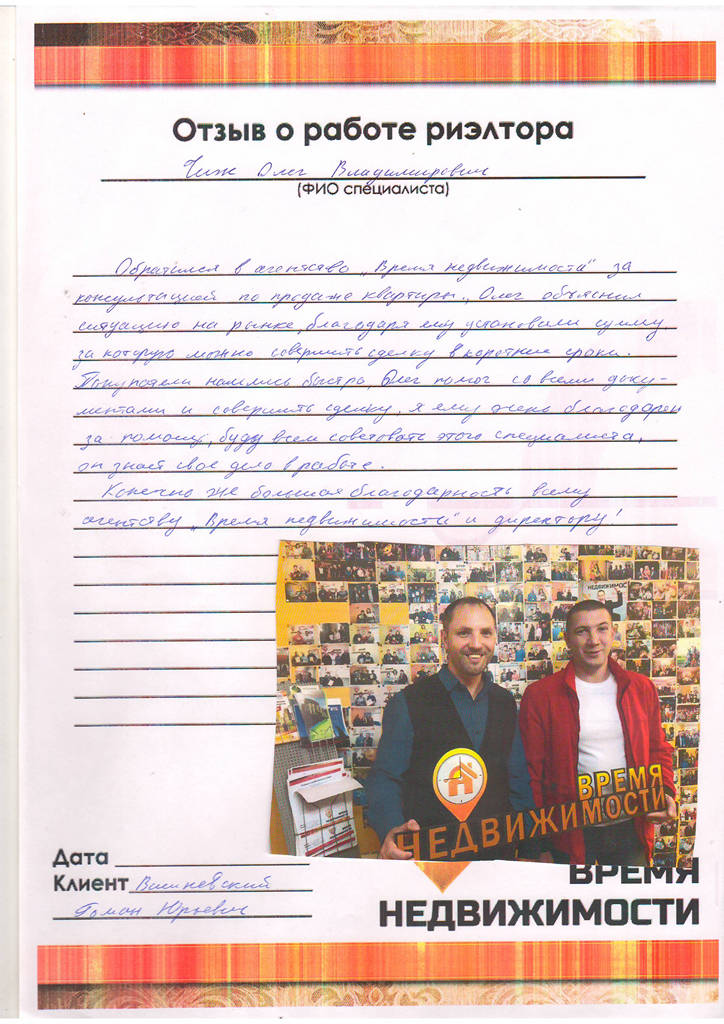 Отзыв о работе риэлтора
Чиж Олег Владимирович
(ФИО специалиста)
Обратился в агентство „Время недвижимости" за
консультацией по продаже квартиры. Олег объяснил
ситуацию на рынке, благодаря ему установили сумму,
за которую можно совершить сделку в короткие сроки.
Покупатели нашлись быстро, Олег помог со всеми доку-
ментами и совершить сделку, я ему очень благодарен
за помощь, буду всем советовать этого специалиста,
он знает своё дело в работе.
Конечно же большая благодарность всему
агентству „Время недвижимости" и директору!
НЕДВИЖИМОС
ВРЕМЯ
НЕДВИЖИМОСТИ
Дата
Клиент Вишневский
Роман Юрьевич
ВРЕМЯ
НЕДВИЖИМОСТИ